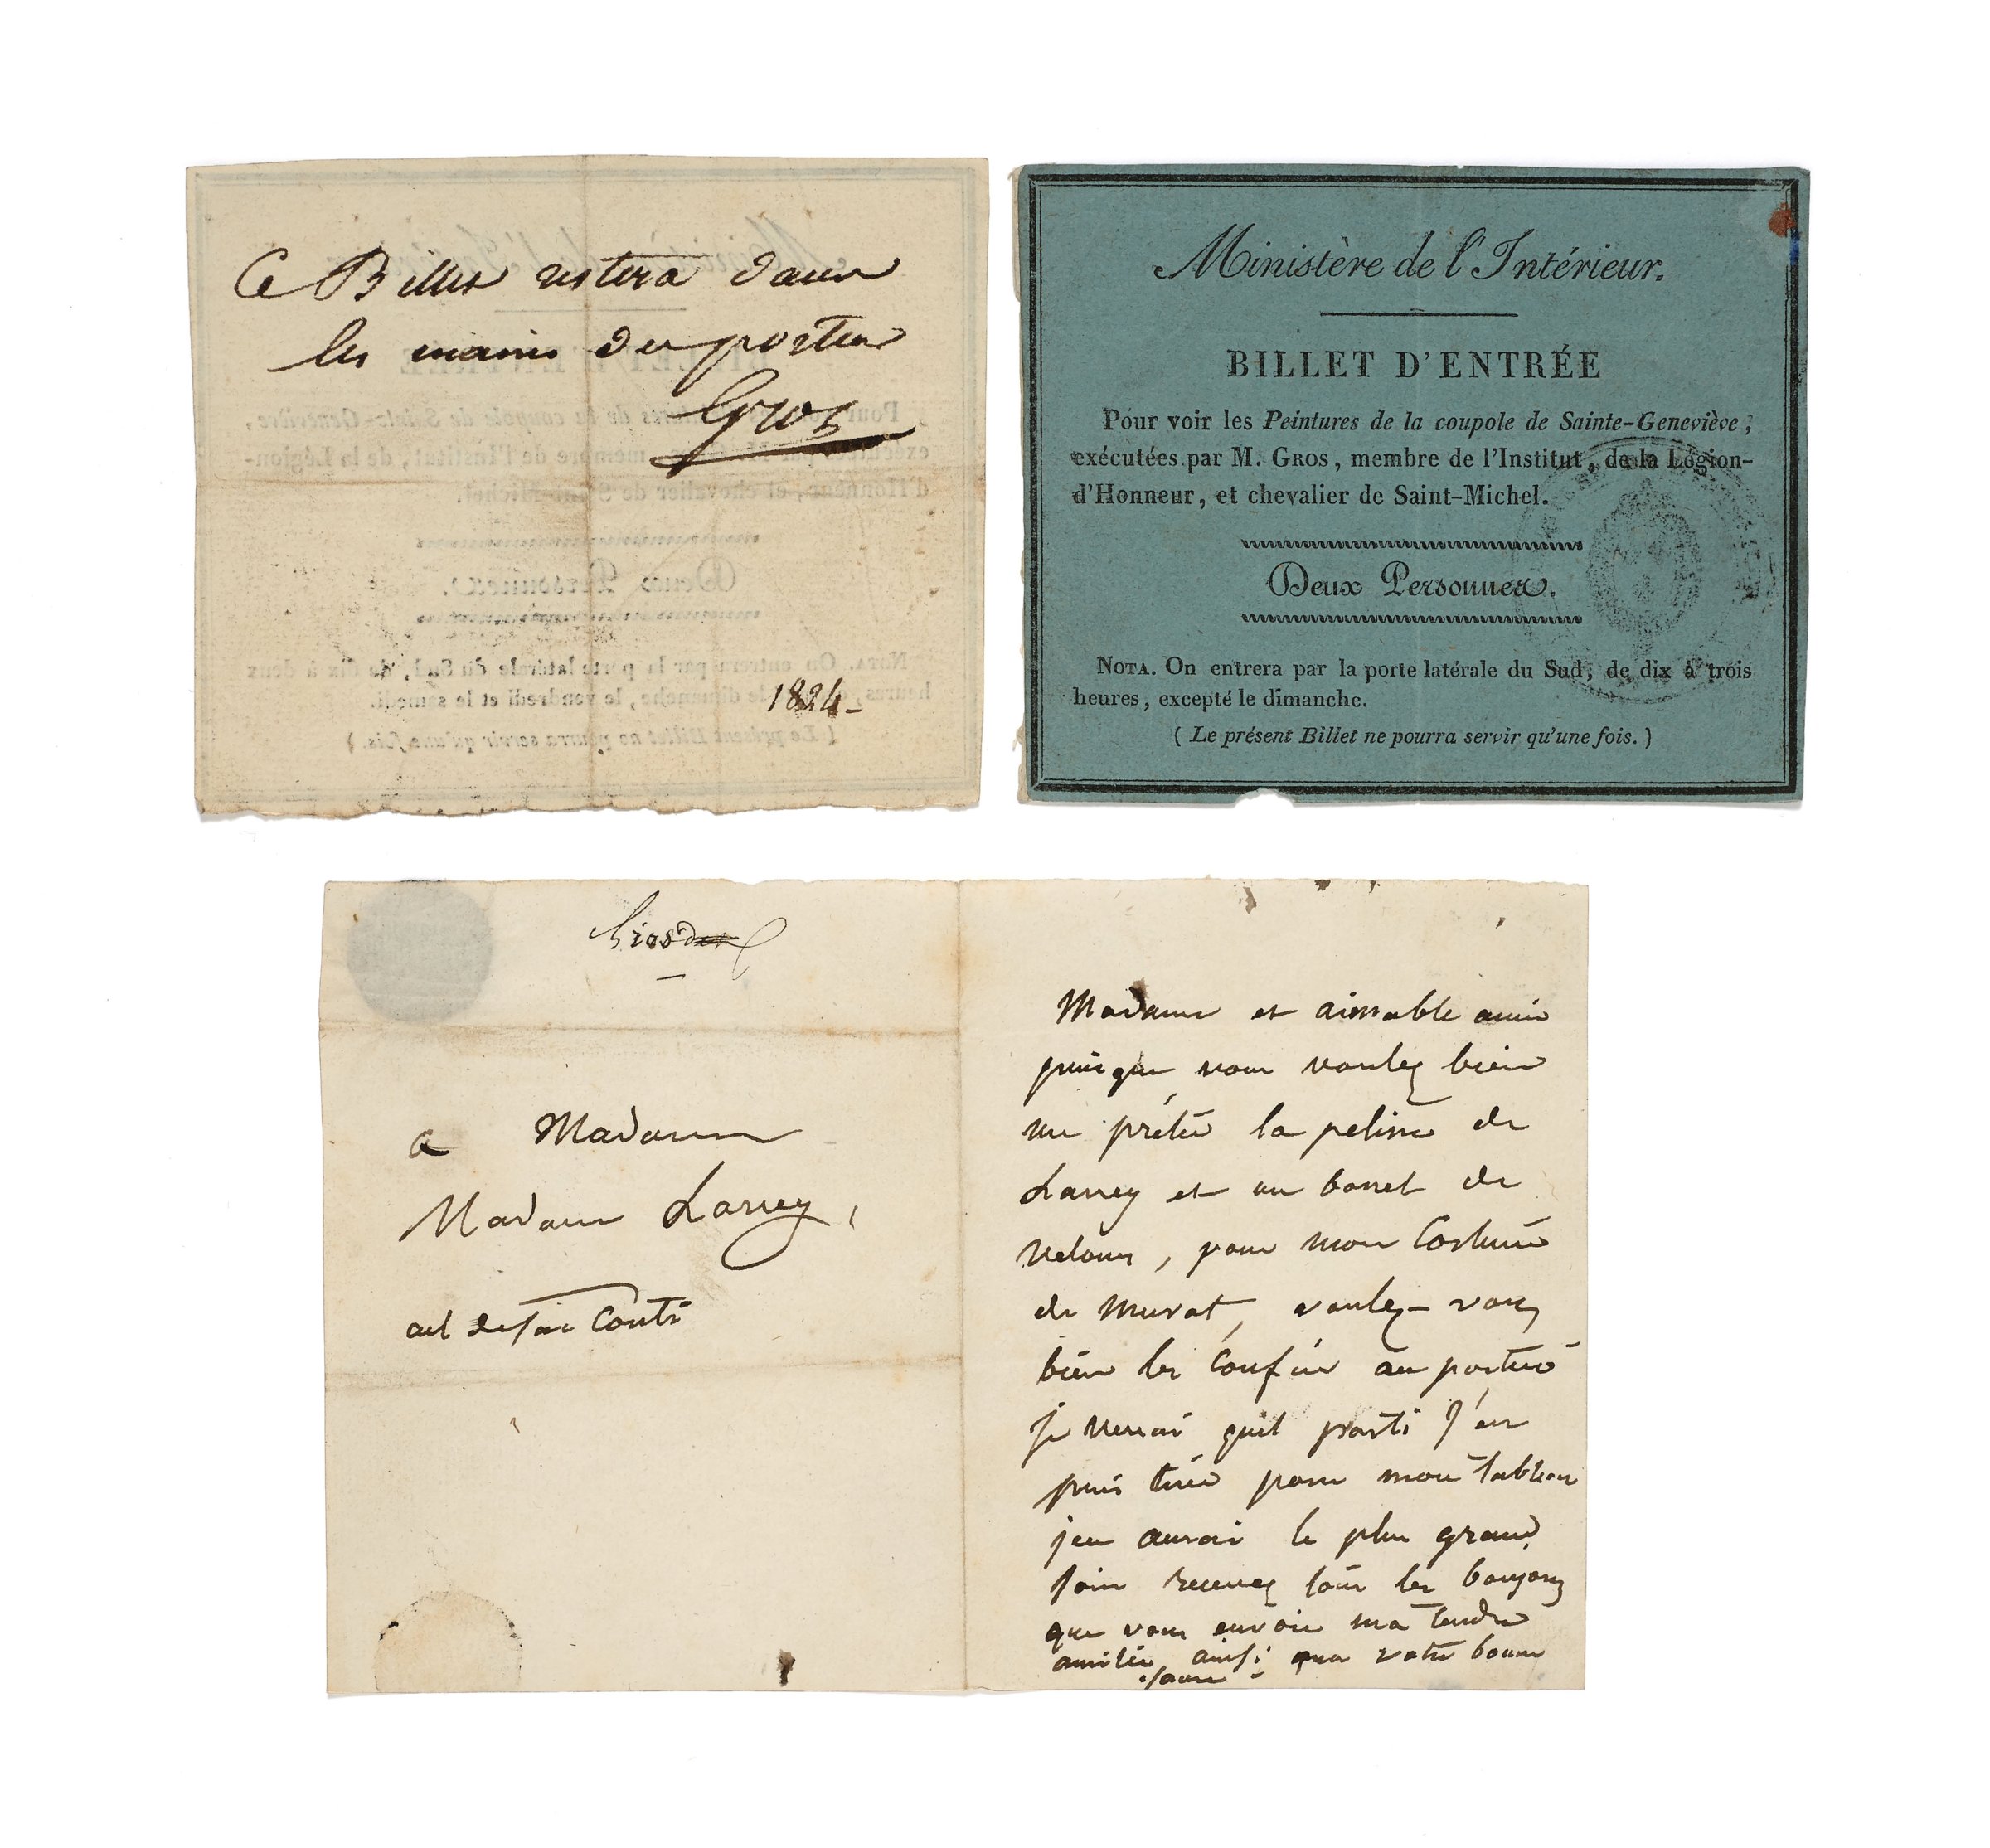 Ce Billet restera dans
les mains du porteur
Gros
1824
Ministère de l'Intérieur.
BILLET D'ENTRÉE
Pour voir les Peintures de la coupole de Sainte-Geneviève,
exécutées par M. GROS, membre de l'Institut, de la Légion-
d'Honneur, et chevalier de Saint-Michel.
Deux Personnes.
NOTA. On entrera par la porte latérale du Sud, de dix à trois
heures, excepté le dimanche.
( Le présent Billet ne pourra servir qu'une fois. )
a Madame
Madame Larrey,
Conti
Madame et aimable amie
puisque vous voulez bien
me prêter la pelisse de
Larrey et un bonet de
velours, pour mon Costume
de Murat, voulez-vous
bien les Confier au porteur
je verrai quel parti j'en
puis tirer pour mon tableau
j'en aurai le plus grand
soin recevez tous les bonjours
que vous envoie ma tendre
amitié, ainsi que votre bonne
soeur